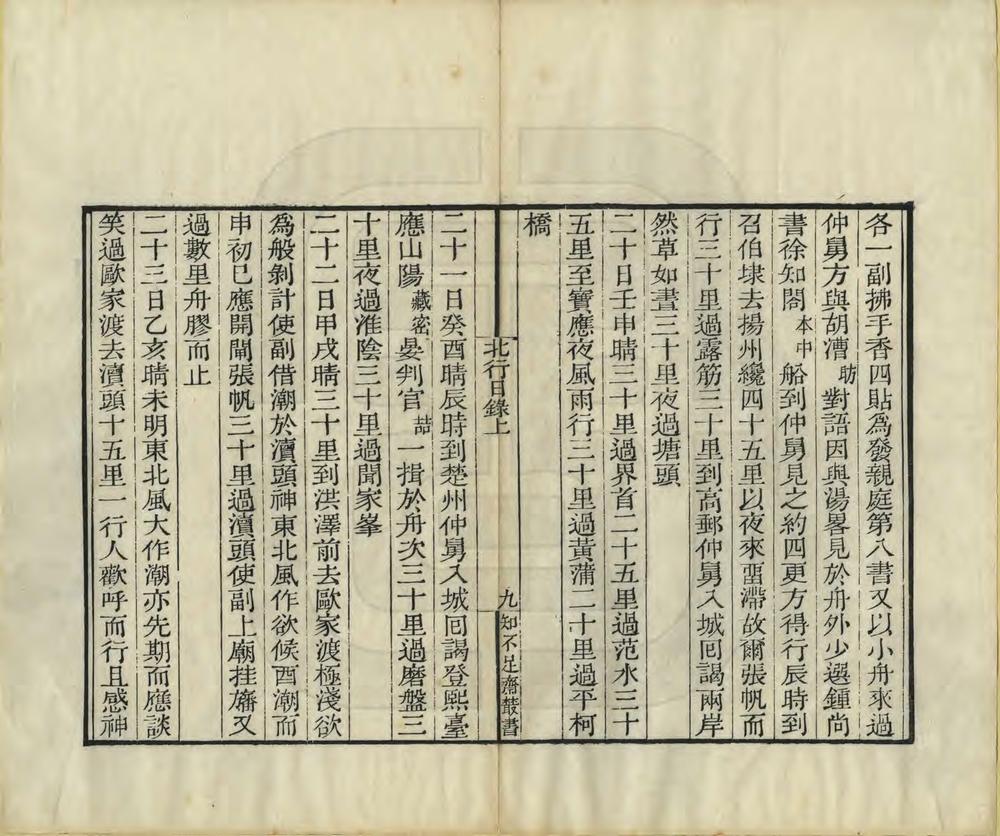 各一副拂手香四貼爲發親庭第八書又以小舟來過
仲舅方與胡漕昉對語因與湯畧見於舟外少選鍾尚
書徐知閤本中船到仲舅見之約四更方得行辰時到
召伯埭去揚州纔四十五里以夜來畱滯故爾張帆而
行三十里過露筋三十里到高郵仲舅入城回謁兩岸
然草如晝三十里夜過塘頭
二十日壬申晴三十里過界首二十五里過范水三十
五里至寶應夜風雨行三十里過黃蒲二十里過平柯
橋
北行日錄上
九
知不足齋叢書
二十一日癸酉晴辰時到楚州仲舅入城回謁登熙臺
應山陽藏密晏判官喆一揖於舟次三十里過磨盤三
十里夜過淮陰三十里過聞家峯
二十二日甲戌晴三十里到洪澤前去歐家渡極淺欲
爲般剝計使副借潮於瀆頭神東北風作欲候酉潮而
申初已應開閘張帆三十里過瀆頭使副上廟挂旛又
過數里舟膠而止
二十三日乙亥晴未明東北風大作潮亦先期而應談
笑過歐家渡去瀆頭十五里一行人歡呼而行且感神